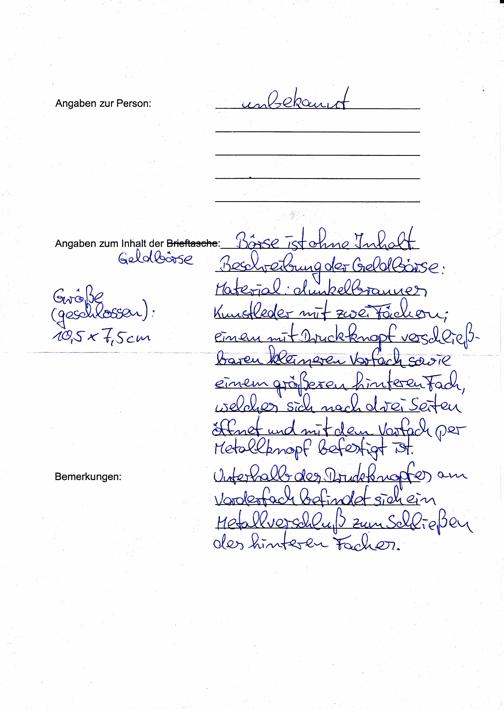 Angaben zur Person: unbekannt
Angaben zum Inhalt der Brieftasche: Börse ist ohne Inhalt
Geldbörse
Beschreibung der Geldbörse:
Größe
(geschlossen):
10,5 x 7,5 cm
Material: dunkelbraunes
Kunstleder mit zwei Fächern;
einem mit Druckknopf verschließ-
baren kleineren Vorfach sowie
einem größeren hinteren Fach,
welches sich nach drei Seiten
öffnet und mit dem Vorfach per
Metallknopf befestigt ist.
Bemerkungen: Unterhalb des Druckknopfes am
Vorderfach befindet sich ein
Metallverschluß zum Schließen
des hinteren Faches.